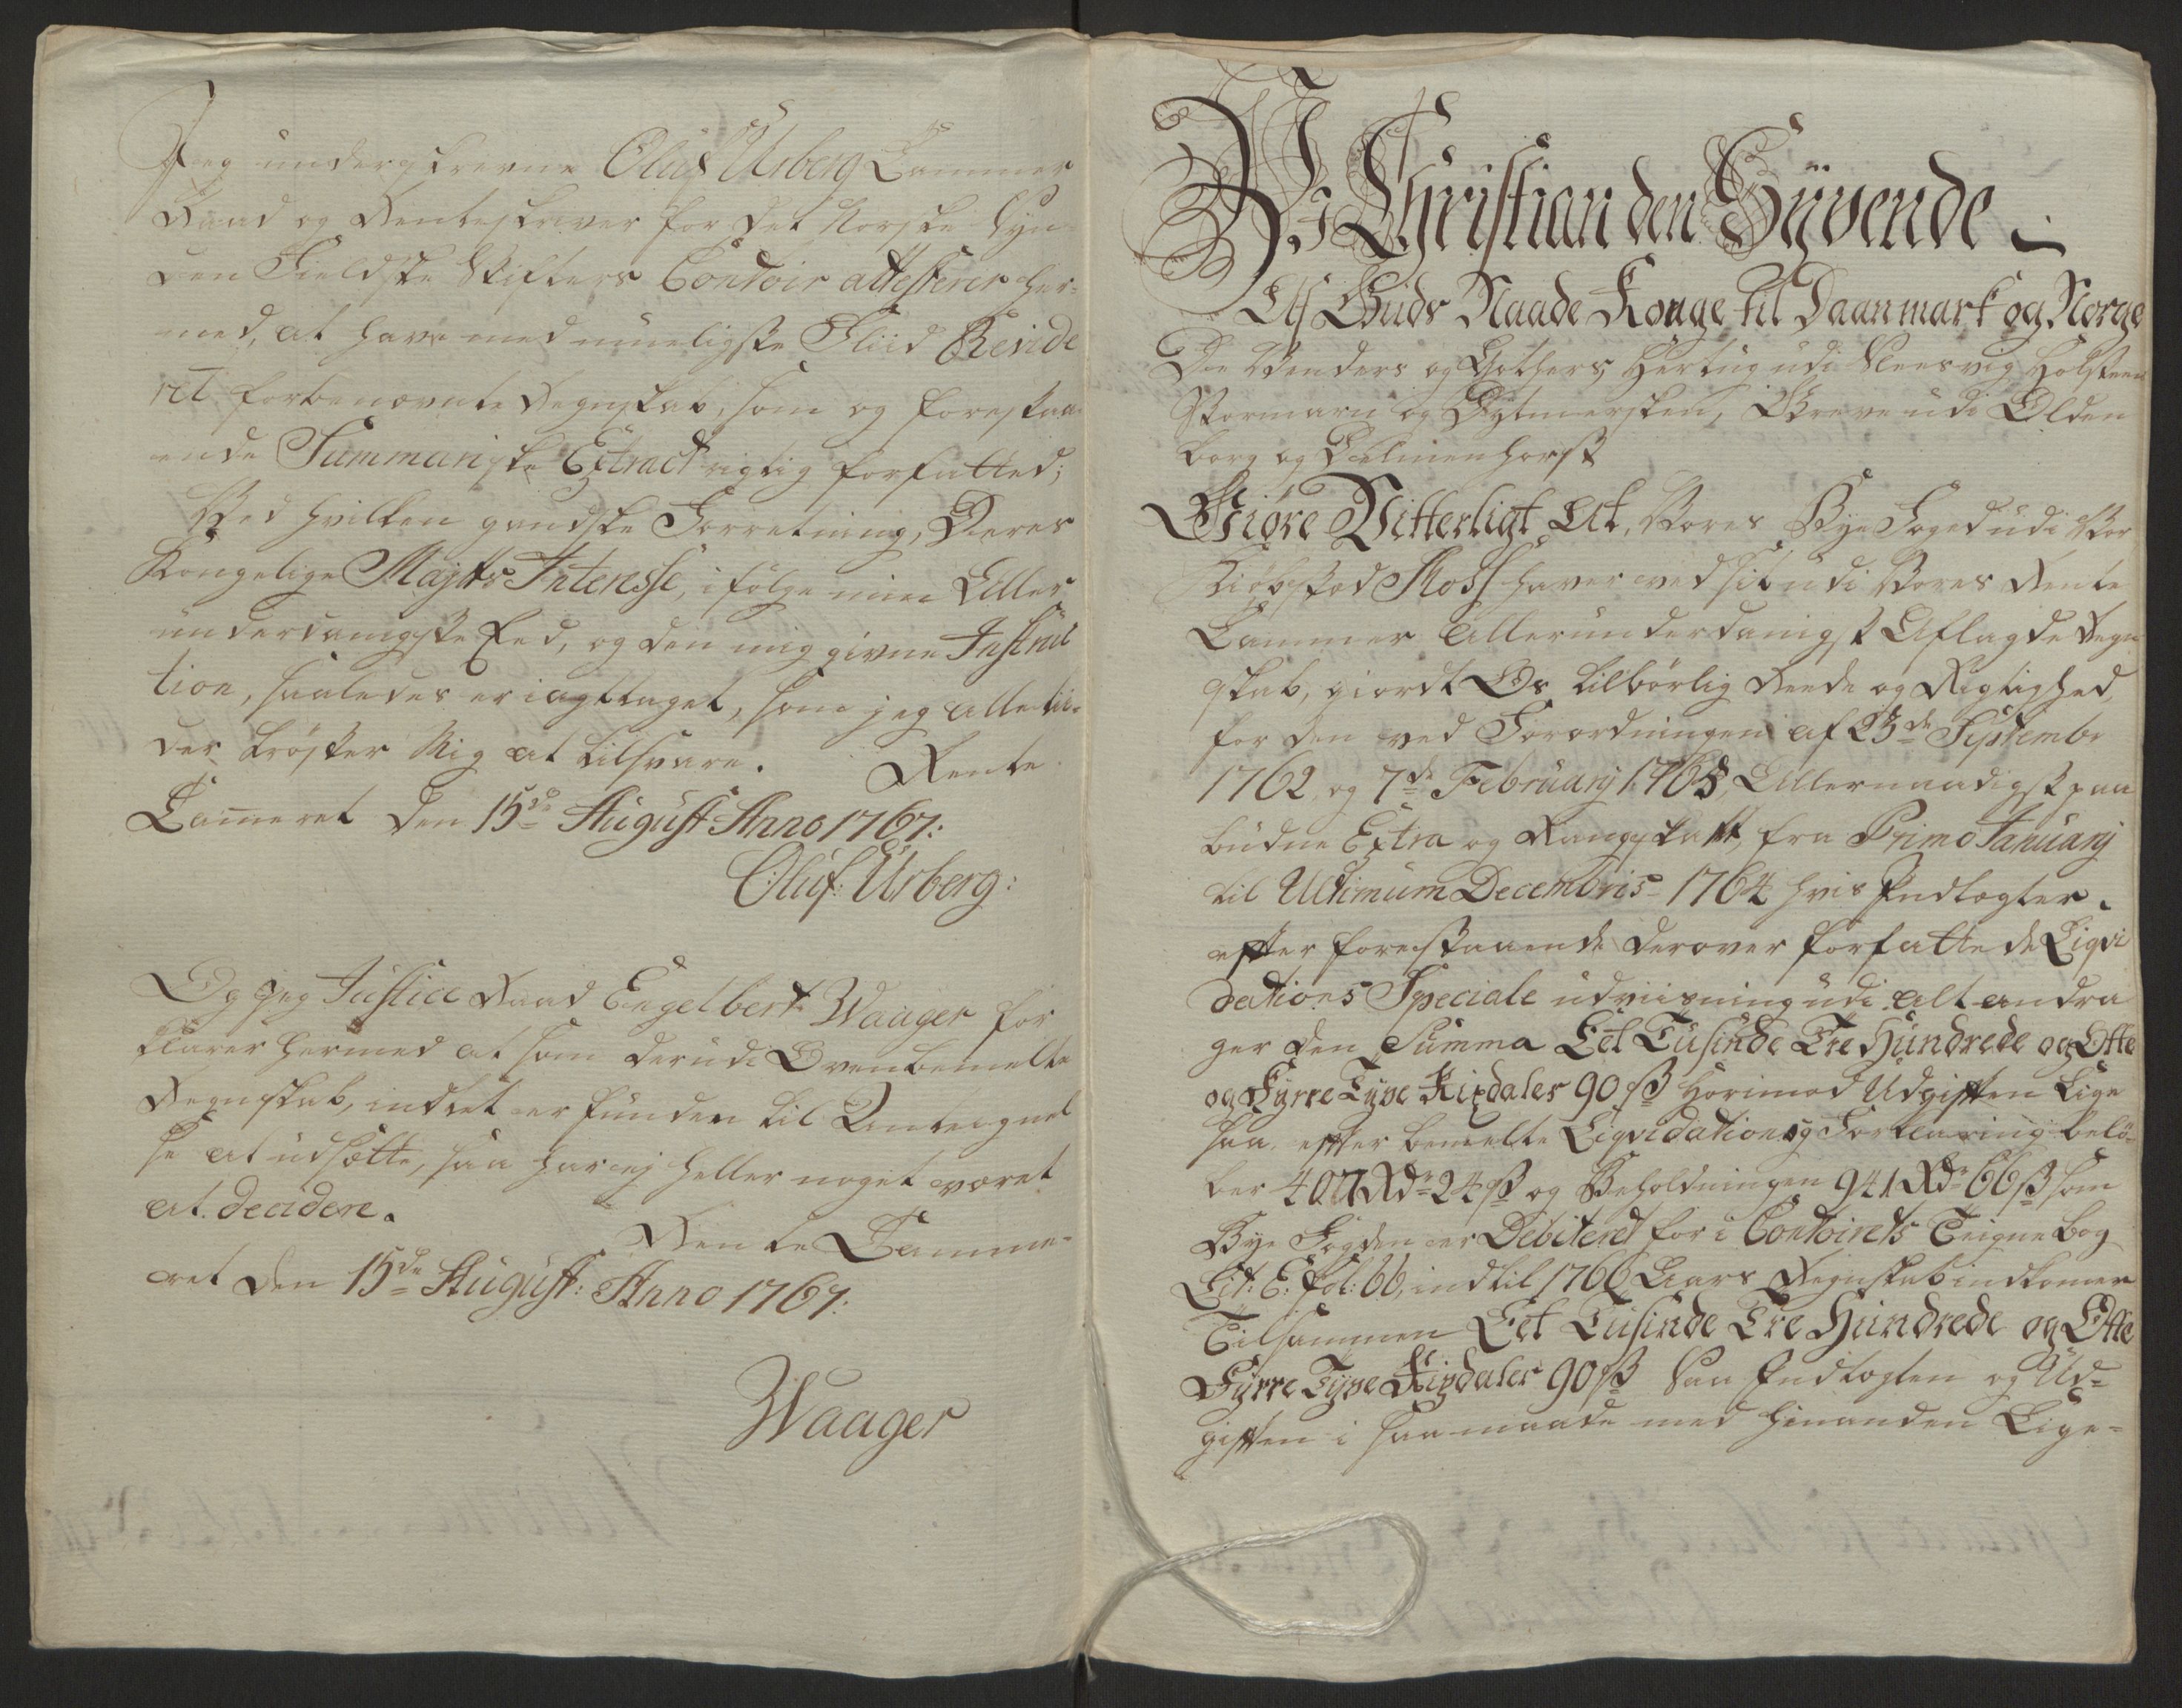 Jeg underskrevne Oluf Ursberg Cammer
Raad og Renteskriver for det Norske Syn-
den Fieldske Stifters Contoir attesterer her-
med, at have med mueligste Fliid Revide
ret forbenævnte Regnskab, som og forestaa-
ende Summariske Extract rigtig forfatted;
Ved hvilken gandske Forretning, Deres
Kongelige Majtts Interesse, i følge min Aller
underdanigste Eed, og den mig givne Instruc
tion, saaledes er iagttaget, som jeg alle tii-
der trøster Mig at tilsvare. Rente
Cameret Den 15de August Anno 1767:
Oluf: Ursberg:
Og Jeg Justice Raad Engelbert Waager for
klarer hermed at som derudi Ovenbemelte
Regnskab, indtet er funden til Antegnel
se at udsætte, saa har ej heller noget været
at decidere.
Rente Camme-
ret Den 15de August: Anno 1767:
Waager
Wi Christian den Syvende
Af Guds Naade Konge til Daanmark og Norge
De Wenders og Gothers, Hertug udi Slesvig Holsteen
Stormarn og Dytmersken, Greve udi Olden
borg og Delmenhorst
Giøre Vitterligt At, Vores Bye Foged udi Vor
Kiøbstad Moss haver ved sit udi Vores Rente
Cammer Allerunderdanigst Aflagde Regn
skab, giordt Os tilbørlig Reede og Rigtighed,
for den ved Forordningen af 23de Septembr
1762 og 7de Februarj 1763, Allernaadigst paa
budne Extra og Rangskatt, fra Primo Januarj
til Ultimum Decembris 1764 hvis Indtægter
efter forestaaende derover forfattede Liqvi
dations Speciale udviisning udi alt andra
ger den Summa Eet Tusinde Tre Hundrede og Otte
og Fyrre Tyve Rixdaler 90 ß Hvorimod Udgiften Lige
saa effter bemelte Liqvidations og Forklaring belø-
ber 407 Rdr 24 ß og Beholdningen 941 Rdr 66 ß som
Bye Fogden er Debiteret for i Contoirets Teigne bog
Lit: E: fol: 66, indtil 1766 Aars Regnskab indkomer
Tilsammen Eet Tusinde Tre Hundrede og Otte
Fyrre Tyve Rixdaler 90 ß Saa Indtægten og Ud-
giften i saa maade med hinanden Lige-